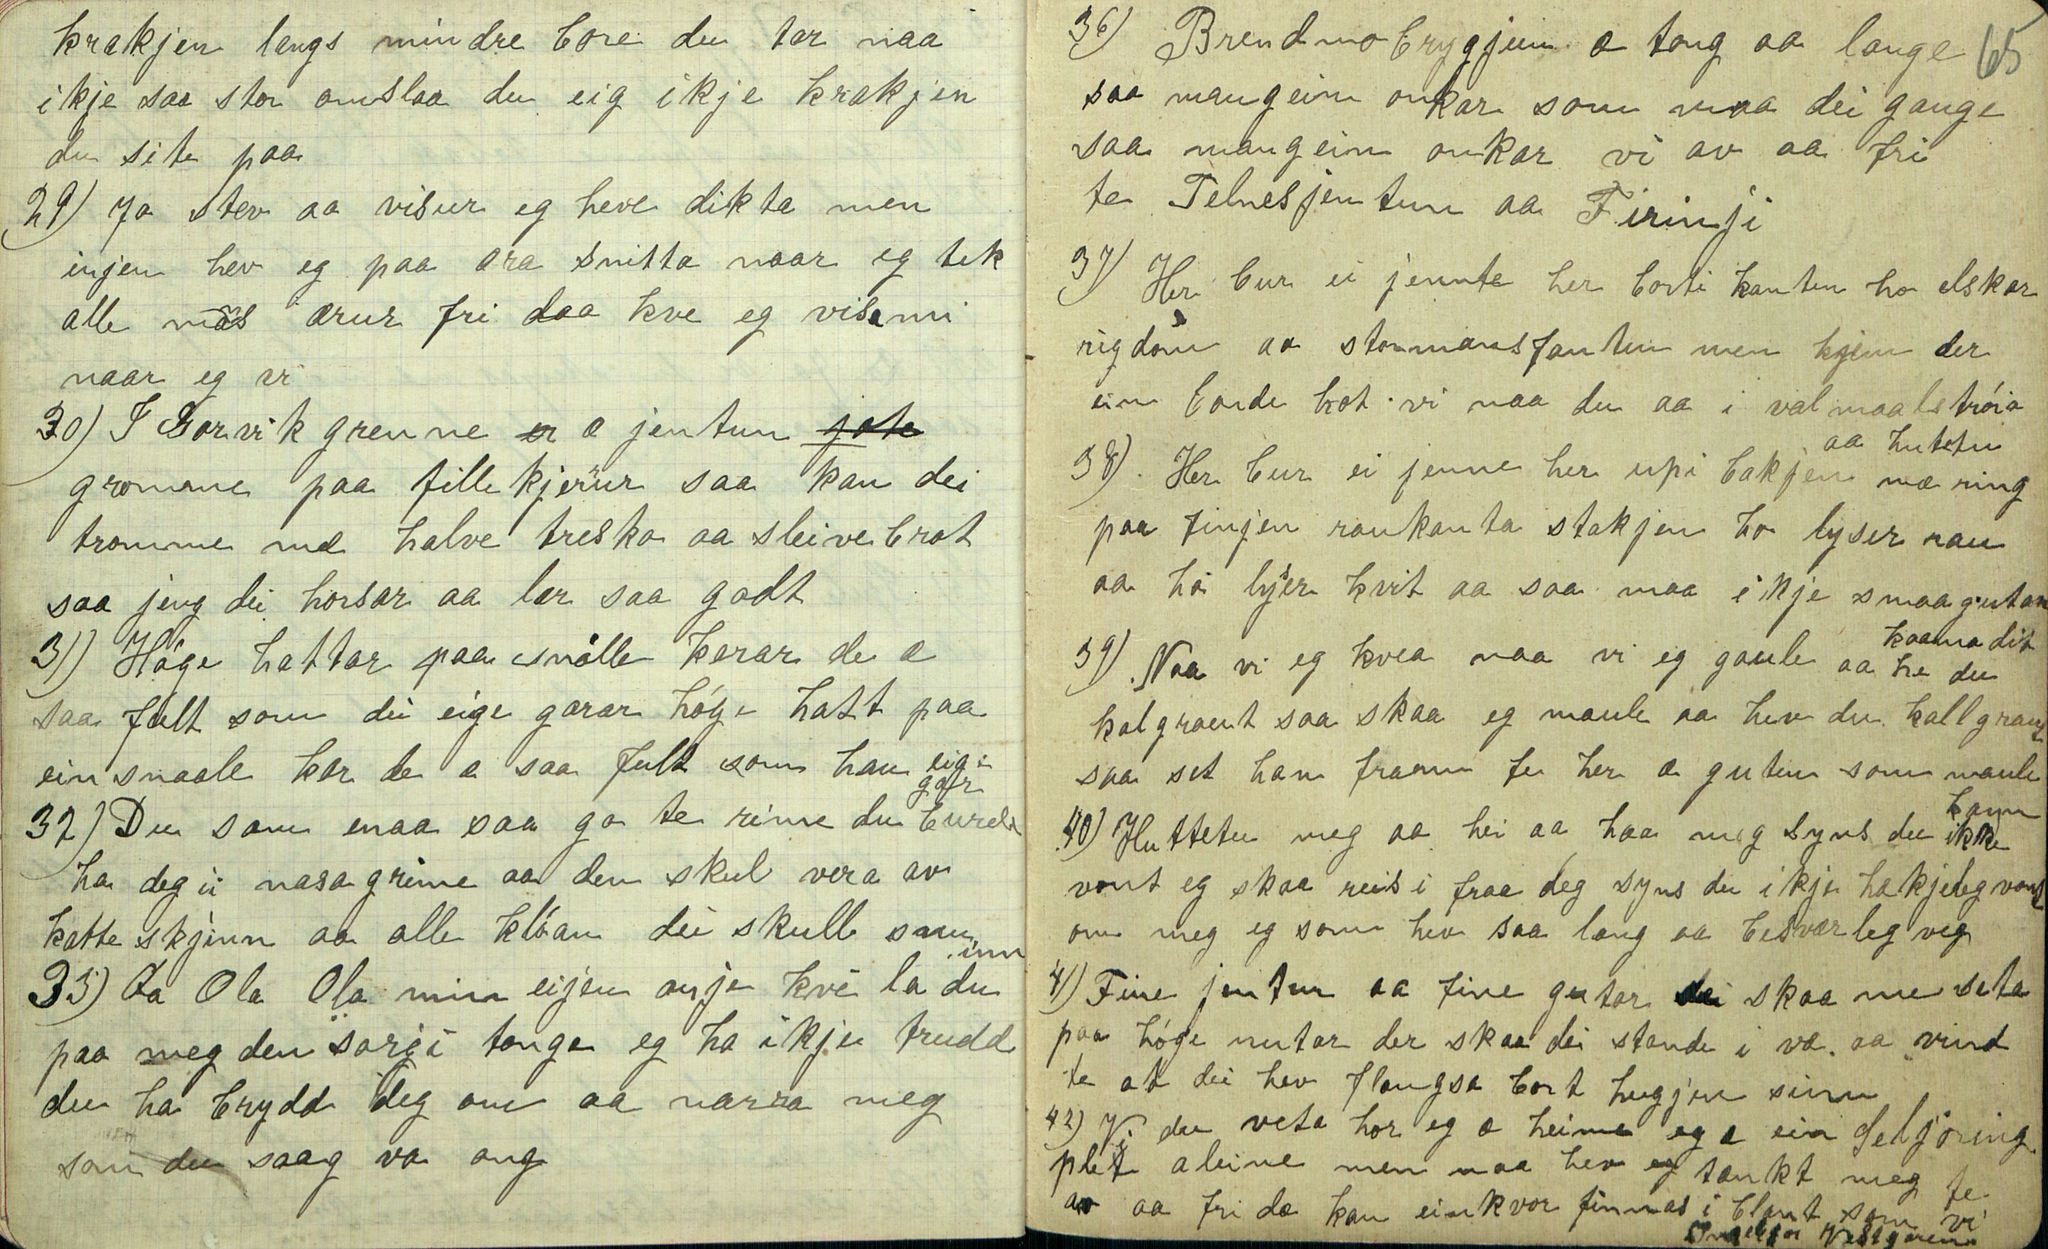 krakjen langs mindre bore du tor naa
ikje saa stor omslaa du eig ikje krakjen
du site paa
29) Ja stev aa visur eg heve dikta men
injen hev eg paa æra snitta naar eg tek
alle mås ærur fri daa kve eg visa mi
naar eg vi
30) I Gorvik grenne er æ jentun jote
gromme paa fillekjerur saa kan dei
tromme mæ halve tresko aa sleivebrot
saa jeng dei horsar aa lær saa godt
31) Höge hattar paa snålle karar de æ
saa fult som dei eige garar höge hatt paa
ein snaale kar de æ saa fult som han eige
gar
32) Du som enaa saa go te rime du burde
ha deg ii nasagrime aa den skul vera av
katteskjinn aa alle klóan dei skulle snu
inn
33) Aa Ola Ola min eijen onje kvi la du
paa meg den sorji tonge eg ha ikje trudd
du ha brydd deg om aa narra meg
som du saag va ong
65
36) Brendmobrygjun æ tong aa lange
saa mangeim onkar som maa dei gange
saa mangeim onkar vi av aa fri
te Telnesjentun aa Firinji
37) Her bur ei jennte her borti kanten ho elskar
rigdom aa stormansfanten men kjem der
ein bonde brot vi naa du aa i valmaalströia
aa hutetu
38) Her bur ei jenne her upi bakjen mæ ring
paa finjen raukanta stakjen ho lyser rau
aa ho lyser kvit aa saa maa ikje smaagutan
kaama dit
39) Naa vi eg kvea naa vi eg gaule aa he du
kalgraut saa skaa eg maule aa hev du kallgraut
saa set han fraam fe her æ guten som maule
kann
40) Huttetu meg aa hei aa haa meg syns du ikke
vont eg skaa reis i fraa deg syns du ikje hakje deg vont
om meg eg som hev saa lang aa besværleg veg
41) Fine jentur aa fine gutar dei skaa me seta
paa höge nutar der skaa dei stande i væ aa vind
te at dei hev flongsa bort hugjen sinn
42) Vi du veta hor eg æ heime eg æ ein Geljöring
plet aleine men naa hev eg tænkt meg te
av aa fri dæ kan einkvor finnas i blant som vi